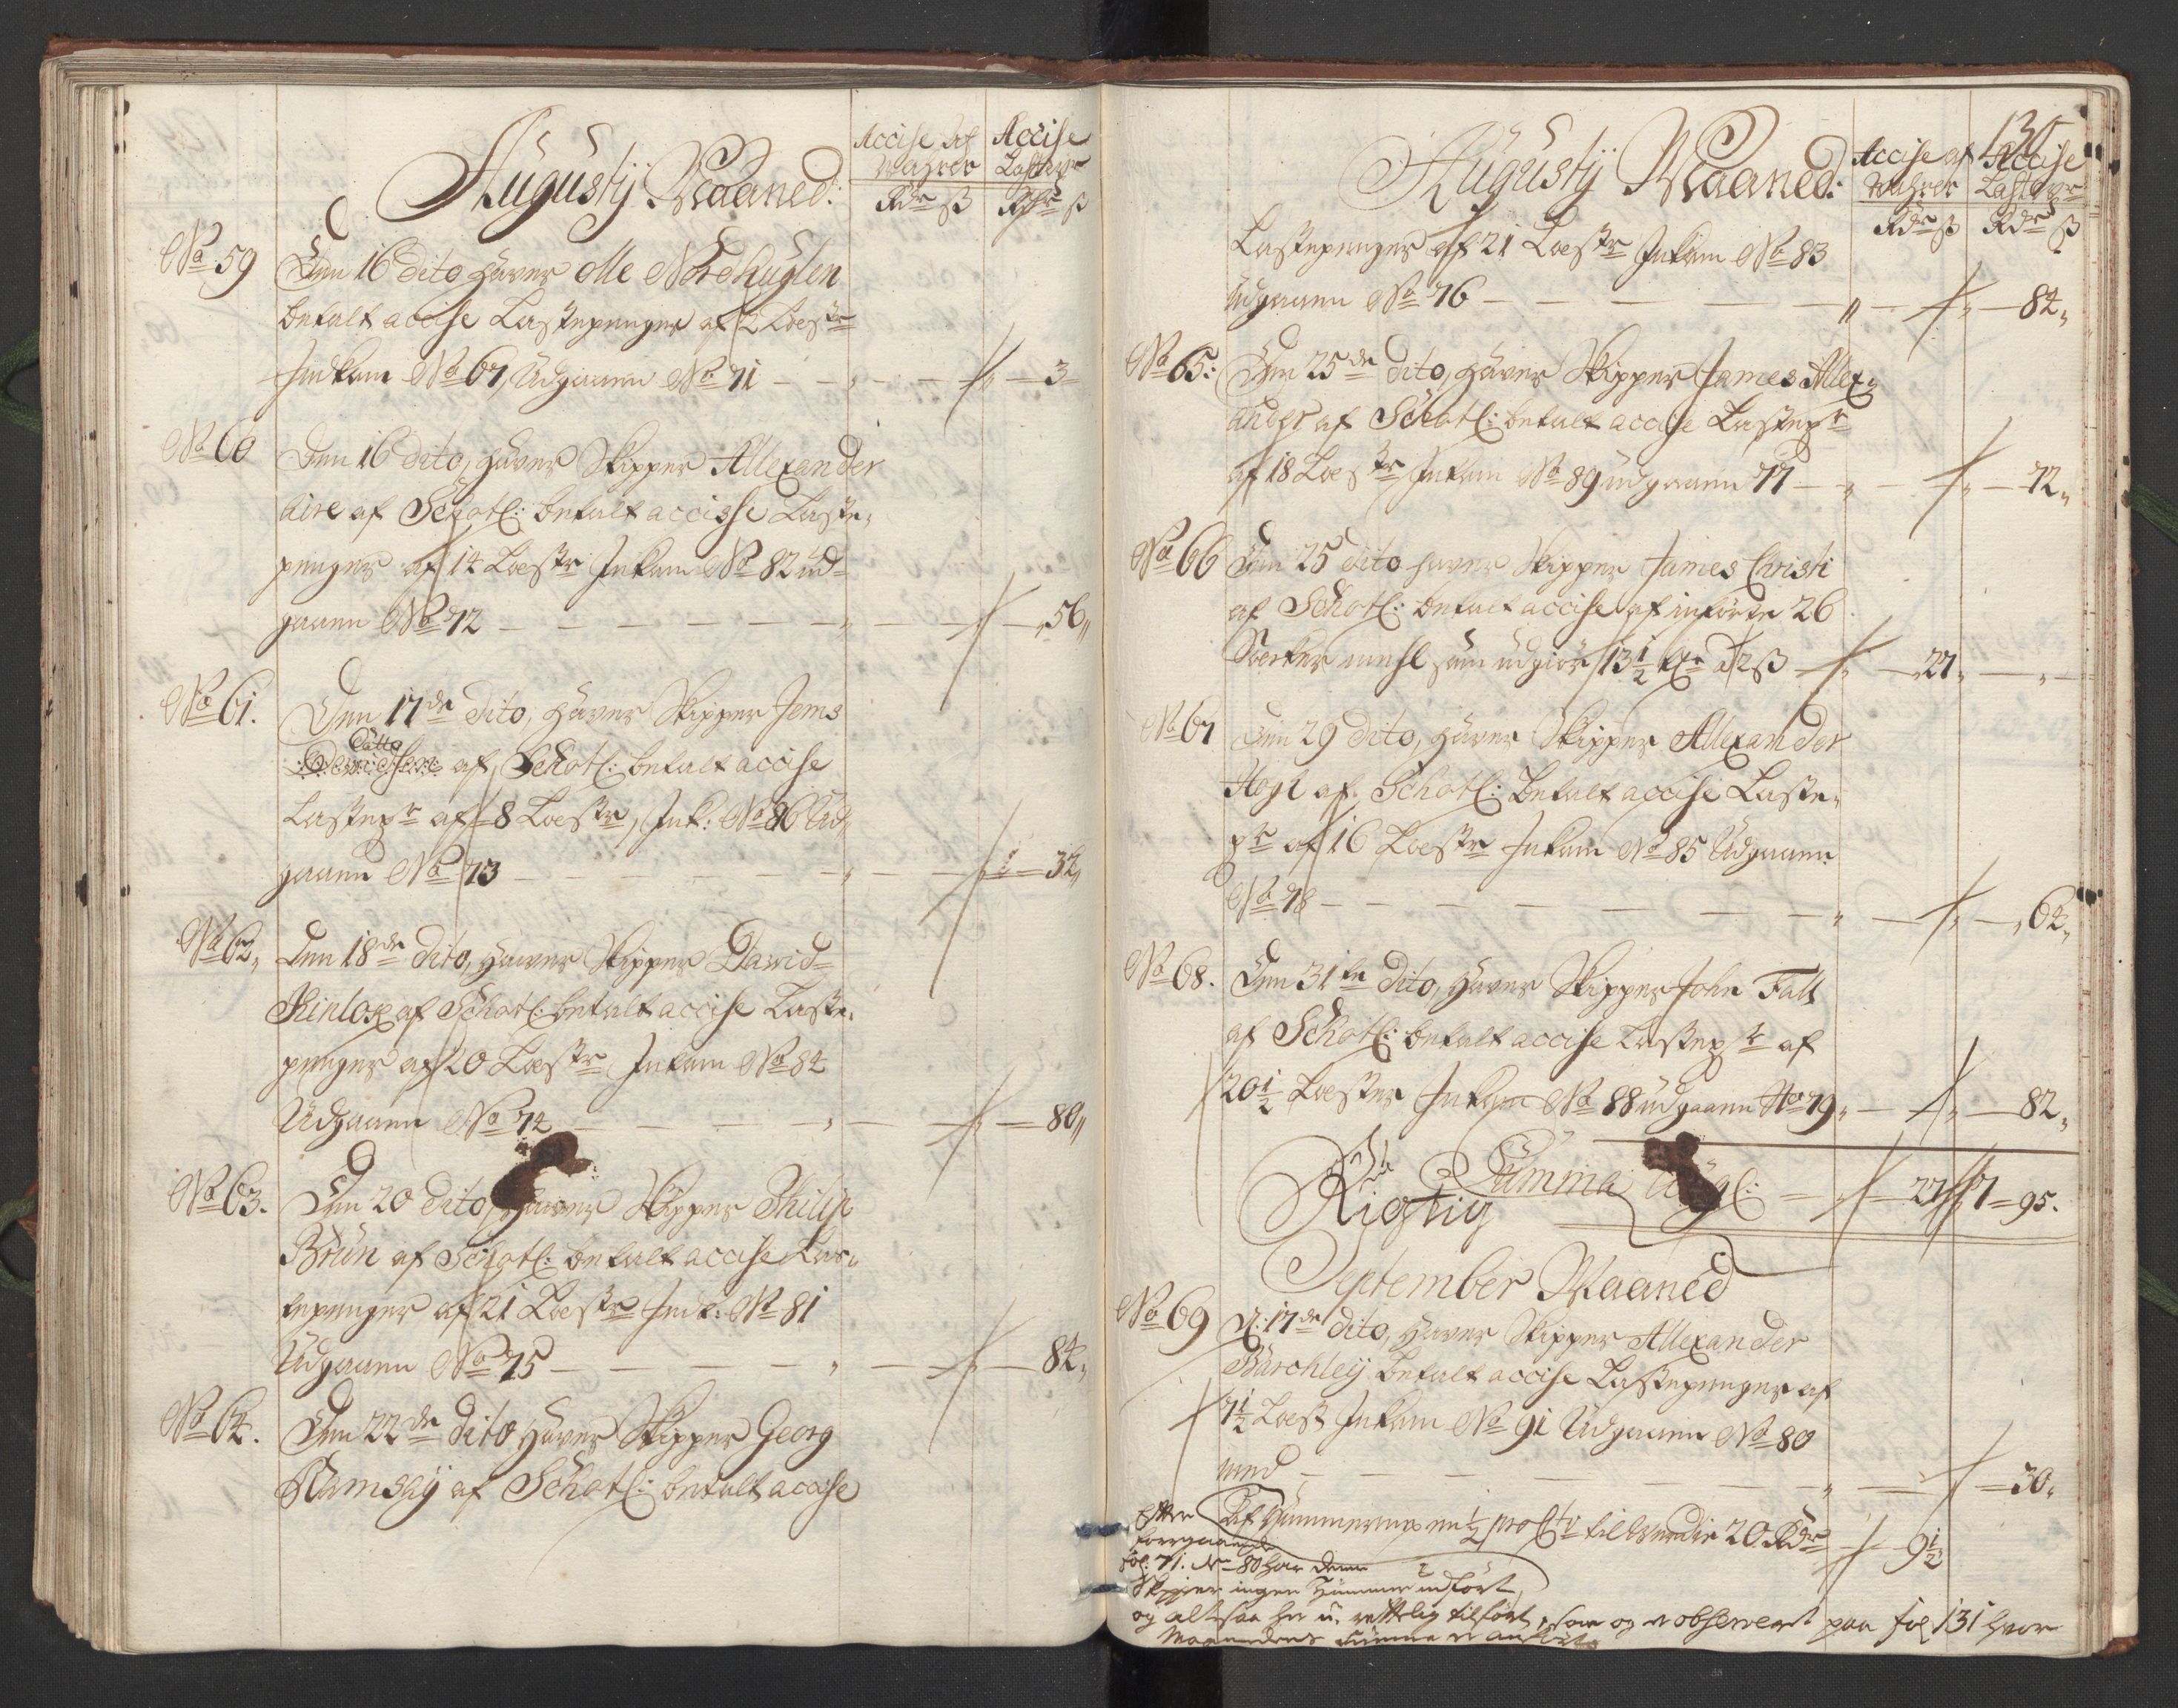 Augustij Maaned:
Accise af
Wahrer
Rdr ß
Accise
Lastepr
Rdr ß
No 59
Den 16 dito haver Olle Nordhuglen
betalt accise Lastepenger af 2 Loestr
Indkom No 67, Udgaaen No 71 — 3
No 60
Den 16 dito, haver Skipper Allexander
aire af Schotl: betalt accisse Laste,
penger af 14 Loestr Inkom No 82 ud-
gaaen No 72 — 56,,
No 61.
Den 17de dito, haver Skipper Jems
Catto
af Schotl: betalt accise
Lastepr af 8 Loestr, Ink: No 86 Ud,
gaaen No 73 — 32,,
No 62,
Den 18de dito, haver Skipper Dawid
Kinlox af Schotl: betalt accise Laste,
penger af 20 Loestr Inkom No 84
Udgaaen No 74 — 80,,
No 63.
Den 20 dito, haver Skipper Philip
Brun af Schotl: betalt accise Las,
tepenger af 21 Loestr Ink: No 81
Udgaaen No 75 — 84,,
No 64.
Den 22de dito haver Skipper Georg
Ramsaÿ af Schotl: betalt accise
130
Augustij Maaned:
Accise af
Wahrer
Rdr ß
Accise
Lastepr
Rdr ß
Lastepenger af 21 Loestr Inkom No 83
Udgaaen No 76 — 84,,
No 65:
Den 25de dito, haver Skipper James Allex,
ander af Schotl: betalt accise Lastepr
af 18 Loestr Inkom No 89 udgaaen 77 — 72,,
No 66
Den 25 dito haver Skipper James Christi
af Schotl: betalt accise af inførte 26
Sæcker meehl som udgiør 13 1/2 tr a 2 ß — 27,,
No 67
Den 29 dito, haver Skipper Allexander
Hogl af Schotl: betalt accise Laste,
pr af 16 Loestr Inkom No 85 Udgaaen
No 78 — 64,,
No 68.
Den 31te dito, haver Skipper John Fall
af Schotl: betalt accise Lastepr af
20 1/2 Loester Inkom No 88 udgaaen No 79 — 82,,
Summa — 27 7 = 95.
Rigtig
September Maaned
No 69
D: 17de dito, haver Skipper Allexander
Barchleÿ betalt accise Lastepenger af
7 1/2 Loest Inkom No 91 Udgaaen No 80
med — 30,,
Af Hummer 1/2 pro Cto til Werdie 20 Rdr — 9 1/2
Efter
forregaaende
fol: 71. No 80 har denne
Skipper ingen Hummer udført,
og altsaa her u-rettelig tilført, som og er observeret paa fol 131 hvor
Maanedens Summa er anført